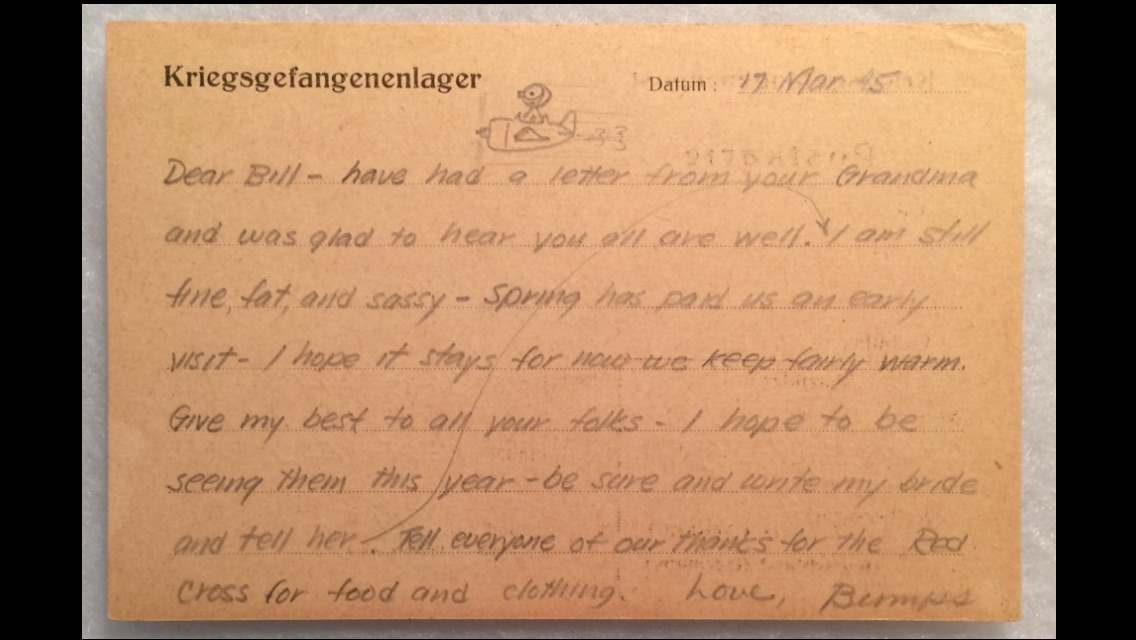 Kriegsgefangenenlager Datum: 17 Mar. 45
33
Dear Bill - have had a letter from your Grandma
and was glad to hear you all are well. I am still
fine, fat, and sassy - Spring has paid us an early
visit - I hope it stays for now we keep fairly warm.
Give my best to all your folks - I hope to be
seeing them this year - be sure and write my bride
and tell her. Tell everyone of our thanks for the Red
Cross for food and clothing. Love,